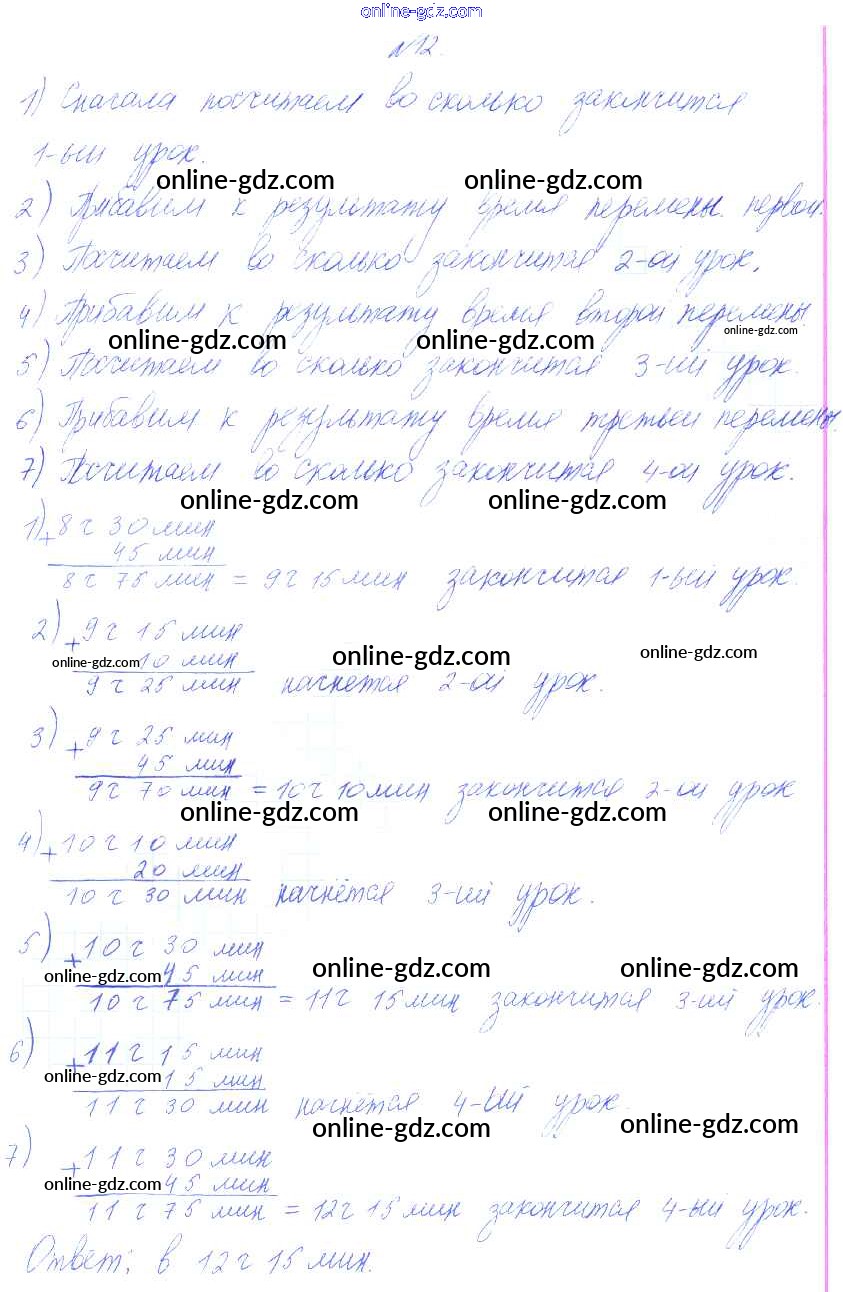 online-gdz.com
№12.
1) Сначала посчитаем во сколько закончится
1-ый урок.
online-gdz.com online-gdz.com
2) Прибавим к результату время перемены первой.
3) Посчитаем во сколько закончится 2-ой урок.
4) Прибавим к результату время второй перемены.
online-gdz.com online-gdz.com online-gdz.com
5) Посчитаем во сколько закончится 3-ий урок.
6) Прибавим к результату время третьей перемены.
7) Посчитаем во сколько закончится 4-ой урок.
online-gdz.com online-gdz.com
1) + 8 ч 30 мин
45 мин
8 ч 75 мин = 9 ч 15 мин закончится 1-ый урок.
2) + 9 ч 15 мин
online-gdz.com 10 мин online-gdz.com online-gdz.com
9 ч 25 мин начнется 2-ой урок.
3) + 9 ч 25 мин
45 мин
9 ч 70 мин = 10 ч 10 мин закончится 2-ой урок
online-gdz.com online-gdz.com
4) + 10 ч 10 мин
20 мин
10 ч 30 мин начнётся 3-ий урок.
5) + 10 ч 30 мин
online-gdz.com 45 мин online-gdz.com online-gdz.com
10 ч 75 мин = 11 ч 15 мин закончится 3-ий урок.
6) + 11 ч 15 мин
online-gdz.com 15 мин
11 ч 30 мин начнётся 4-ый урок.
online-gdz.com online-gdz.com
7) + 11 ч 30 мин
online-gdz.com 45 мин online-gdz.com online-gdz.com
11 ч 75 мин = 12 ч 15 мин закончится 4-ый урок.
Ответ: в 12 ч 15 мин.